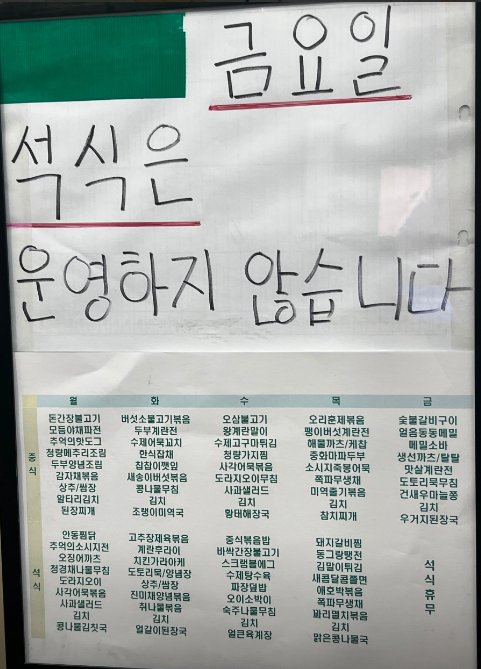 금요일
석식은
운영하지 않습니다
월 화 수 목 금
중식
돈간장불고기 버섯소불고기볶음 오삼불고기 오리훈제볶음 숯불갈비구이
모듬야채파전 두부계란전 왕계란말이 팽이버섯계란전 얼음동동메밀
추억의핫도그 수제어묵꼬치 수제고구마튀김 해물까스/케찹 메밀소바
청량메추리조림 한식잡채 청량가지찜 중화마파두부 생선까스/탈탈
두부양념조림 칩찹이깻잎 사각어묵볶음 소시지죽봉어묵 맛살계란전
감자채볶음 새송이버섯볶음 도라지오이무침 쪽파무생채 도토리묵무침
상추/쌈장 콩나물무침 사과샐러드 미역줄기볶음 건새우마늘쫑
알타리김치 김치 김치 김치 김치
된장찌개 조랭이미역국 황태해장국 참치찌개 우거지된장국
석식
안동찜닭 고추장제육볶음 중식볶음밥 돼지갈비찜 석식휴무
추억의소시지전 계란후라이 바싹간장불고기 동그랑땡전
오징어까스 치킨가라아케 스크램블에그 김말이튀김
청경채나물무침 도토리묵/양념장 수제탕수육 새콤달콤쫄면
도라지오이 상추/쌈장 짜장덮밥 애호박볶음
사각어묵볶음 진미채양념볶음 오이소박이 쪽파무생채
사과샐러드 취나물볶음 숙주나물무침 꽈리멸치볶음
김치 김치 김치 김치
콩나물김칫국 얼갈이된장국 얼큰육계장 맑은콩나물국